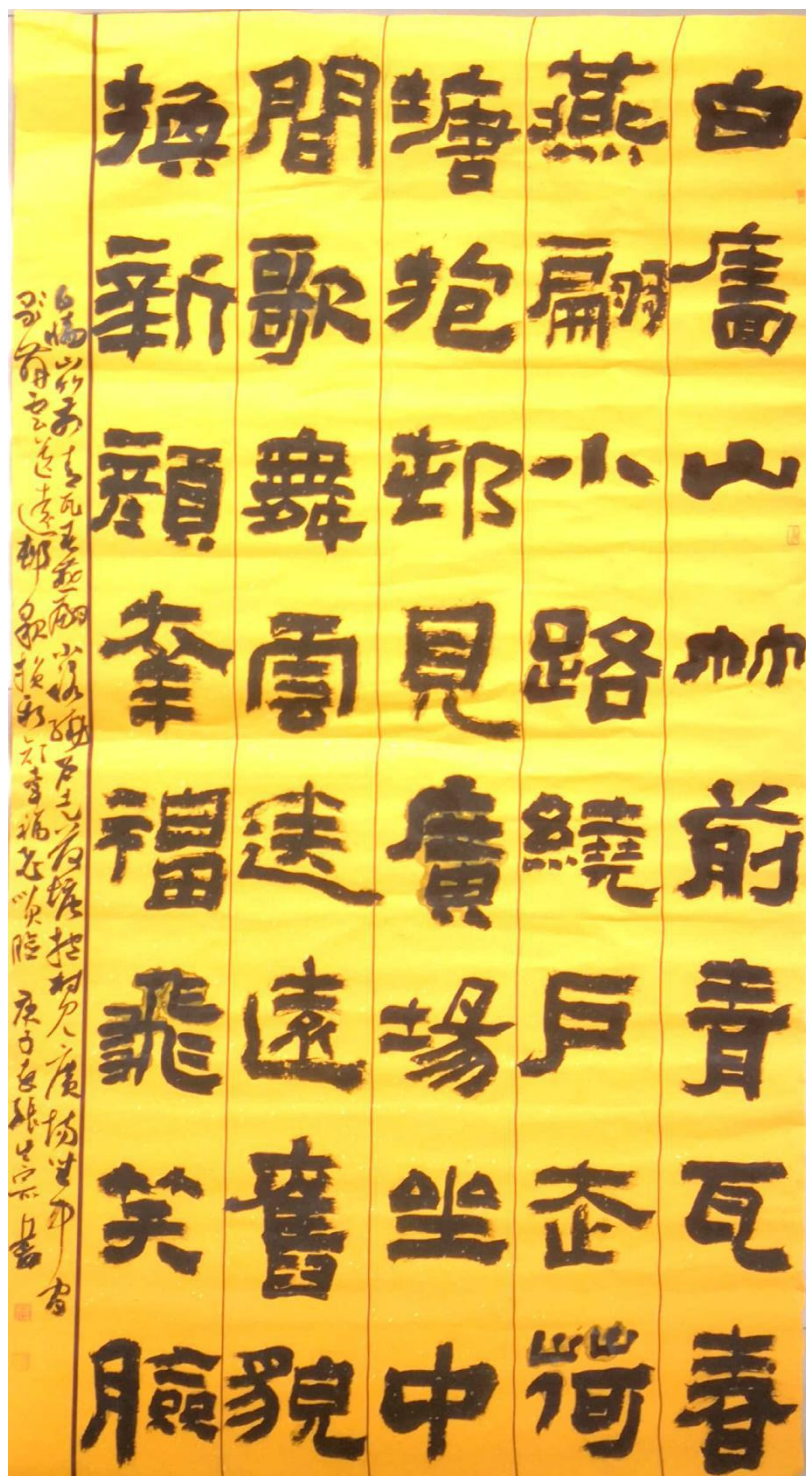 白牆山竹前青瓦春
燕翩小路繞戶走荷
塘抱邨見廣場坐中
間歌舞雲送遠舊貌
換新顏幸福飛笑臉
白牆山竹前青瓦春燕翩小路繞戶走荷塘抱村見廣場坐中間
歌舞雲送遠貌換新顏幸福飛笑臉 庚子春張生書